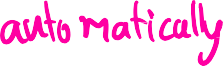 auto matically